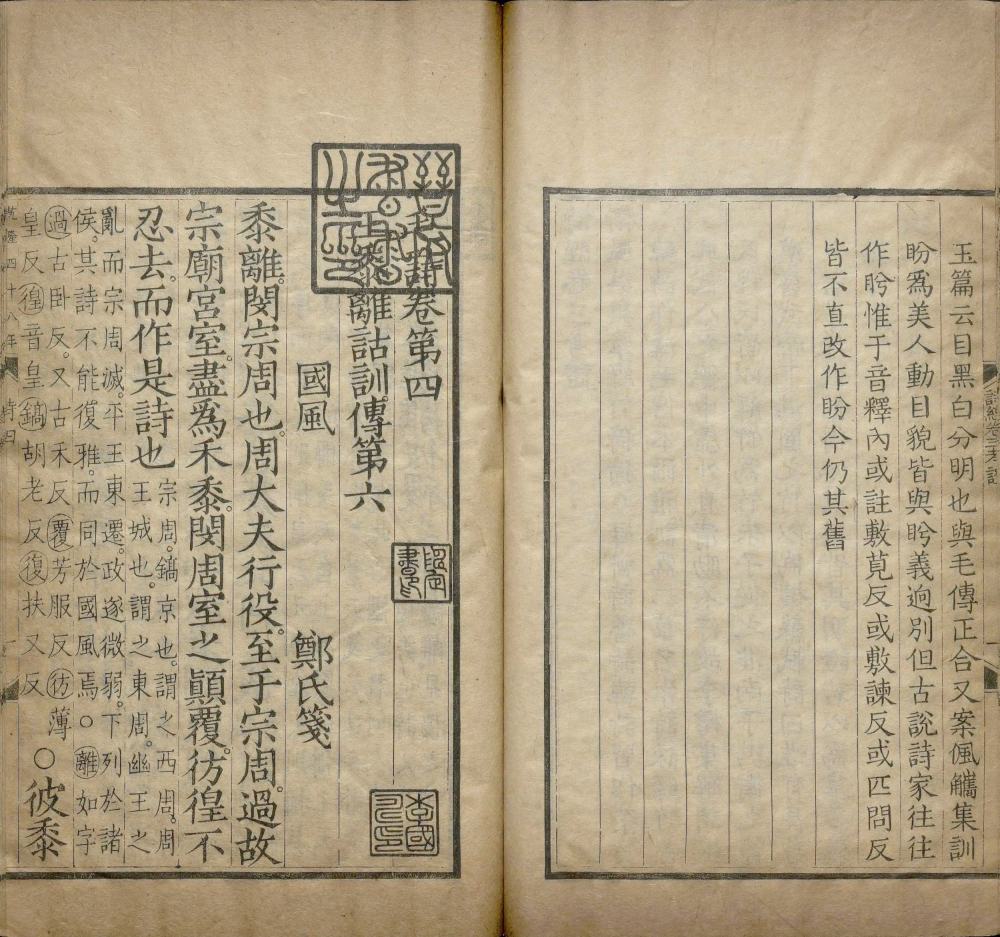 玉篇云目黑白分明也與毛傳正合又案佩觿集訓
盼爲美人動目貌皆與盻義迥別但古説詩家往往
作盻惟于音釋內或註敷莧反或敷諫反或匹問反
皆不直改作盼今仍其舊
毛詩卷第四
黍離詁訓傳第六
國風
鄭氏箋
黍離。閔宗周也。周大夫行役。至于宗周。過故
宗廟宮室。盡爲禾黍。閔周室之顚覆。彷徨不
忍去。而作是詩也
宗周。鎬京也。謂之西周。周
王城也。謂之東周。幽王之
亂而宗周滅。平王東遷。政遂微弱。下列於諸
侯。其詩不能復雅。而同於國風焉。○離如字
過古卧反。又古禾反覆芳服反彷薄
皇反徨音皇鎬胡老反復扶又反
○彼黍
乾隆四十八年
李國